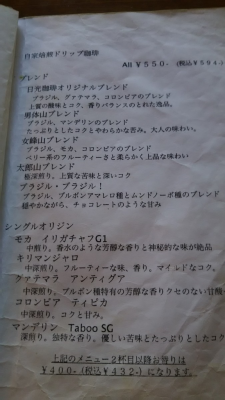 自家焙煎ドリップ珈琲
All ￥550-（税込￥594-）
ブレンド
日光珈琲オリジナルブレンド
ブラジル、グァテマラ、コロンビアのブレンド
上質の酸味とコク、香りバランスのとれた逸品。
男体山ブレンド
ブラジル、マンデリンのブレンド
たっぷりとしたコクとやわらかな苦み。大人の味わい。
女峰山ブレンド
ブラジル、モカ、コロンビアのブレンド
ベリー系のフルーティーさと柔らかく上品な味わい
太郎山ブレンド
極深煎り、上質な苦味と深いコク
ブラジル・ブラジル！
ブラジル、ブルボンアマレロ種とムンドノーボ種のブレンド
穏やかながら、チョコレートのような甘み
シングルオリジン
モカ　イリガチャフG1
中煎り、香水のような芳醇な香りと神秘的な味が絶品
キリマンジャロ
中深煎り、フルーティーな味、香り、マイルドなコク。
グァテマラ　アンティグア
中深煎り、ブルボン種特有の芳醇な香りクセのない甘酸
コロンビア　ティピカ
中深煎り、コクと甘み。
マンデリン　Taboo SG
深煎り、独特な香り、優しい苦味とたっぷりとしたコク
上記のメニュー2杯目以降お替りは
￥400-（税込￥432-）になります。